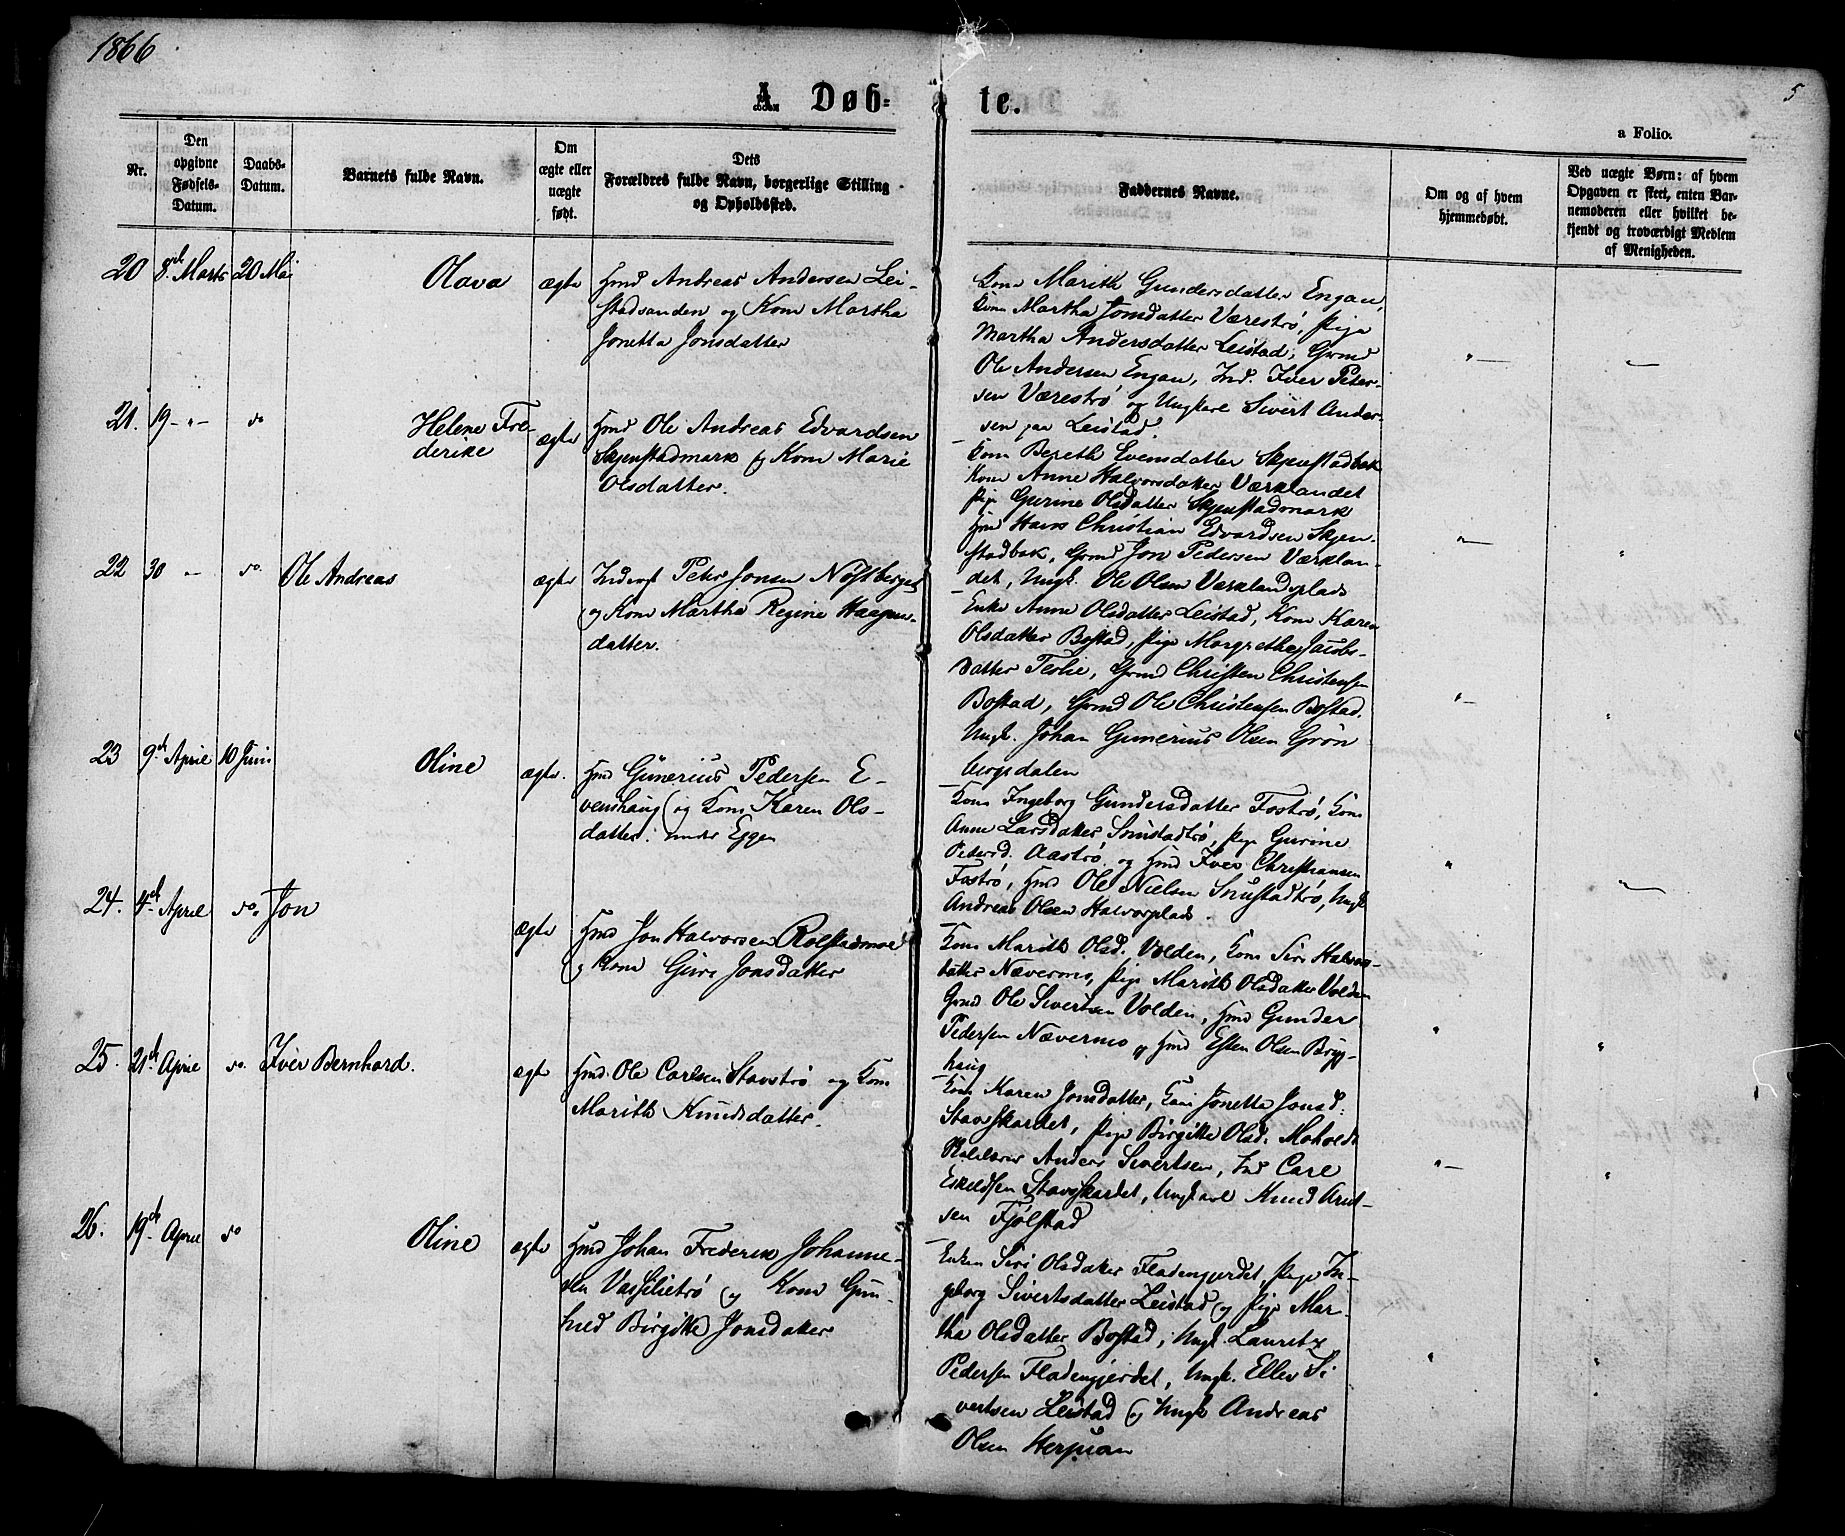 1866
5
A. Døb-te.
a Folio.
Nr.
Den opgivne Fødsels-Datum.
Daabs-Datum.
Barnets fulde Navn.
Om ægte eller uægte født.
Dets Forældres fulde Navn, borgerlige Stilling og Opholdssted.
Faddernes Navne.
Om og af hvem hjemmedøbt.
Ved uægte Børn: af hvem Opgaven er skeet, enten Barnemoderen eller hvilket bekjendt og troværdigt Medlem af Menigheden.
20 8de Marts 20 Mai Olava ægte
Hmd Andreas Andersen Lei-
stadsanden og Kone Martha
Jonetta Jonsdatter
Kone Marith Gundersdatter Engan,
Kone Martha Jonsdatter Værestrø, Pige
Martha Andersdatter Leistad, Grmd
Ole Andersen Engan, Ind. Iver Peter-
sen Værestrø og Ungkare Sivert Ander-
sen paa Leistad.
21. 19 -"- do Helene Fre-
derike ægte
Hmd Ole Andreas Edvardsen
Skjenstadmark og Kone Marie
Olsdatter.
Kone Bereth Evensdatter Skjenstadbak
Kone Anne Halvorsdatter Værklandet
Pige Gurine Olsdatter Skjenstadmark
Hmd Hans Christian Edvardsen Skjen-
stadbak, Grmd Jon Pedersen Værklan-
det, Ungk. Ole Olsen Værklandsplads
22 30 - do. Ole Andreas ægte
Inderst Peter Jonsen Nøstberget
og Kone Martha Regine Haagens-
datter.
Enke Anne Olsdatter Leistad, Kone Karen
Olsdatter Bostad, Pige Margrethe Jacobs-
datter Teslie, Grmd Christen Christensen
Bostad, Grmd Ole Christensen Bostad.
Ungk. Johan Gunerius Olsen Grøn
bergsdalen
23 9de April 10 Juni Oline ægte.
Hmd Gunerius Pedersen E-
venshaug og Kone Karen Ols-
datter: under Eggen
Kone Ingeborg Gundersdatter Fostrø, Kone
Anne Larsdatter Snustadtrø, Pige Gurine
Petersd. Aastrø og Hmd Iver Christiansen
Fostrø, Hmd Ole Nielsen Snustadtrø, Ungk
Andreas Olsen Halvorplads.
24. 4de April do. Jon ægte
Hmd Jon Halvorsen Rolstadmoe
og Kone Guru Jonsdatter
Kone Marith Olsd. Volden, Kone Siri Halvors-
datter Nævermo, Pige Marith Olsdatter Volden
Grmd Ole Sivertsen Volden, Hmd Gunder
Pedersen Nævermo og Hmd Esten Olsen Bryg-
haug
25. 21de April do. Iver Bernhard. ægte
Hmd. Ole Carlsen Stavstrø og Kone
Marith Knudsdatter.
Kone Karen Jonsdatter, Kone Jonetta Jonsd.
Stavskardet, Pige Birgitte Olsd. Moholdt
Anders Sivertsen, Ind Carl
Eskildsen Stavskardet, Ungkarl Knud Arnt-
sen Fjølstad
26. 19de April do Oline ægte
Hmd Johan Frederik Johanne-
sen Vasslietrø og Kone Gun-
hild Birgitte Jonsdatter
Enken Siri Olsdatter Fladengjerdet, Pige In-
geborg Sivertsdatter Leistad og Pige Mar-
tha Olsdatter Bostad, Ungk. Lauretz
Pedersen Fladengjerdet, Ungk. Ellev Si
vertsen Leistad og Ungk Andreas
Olsen Herjuan